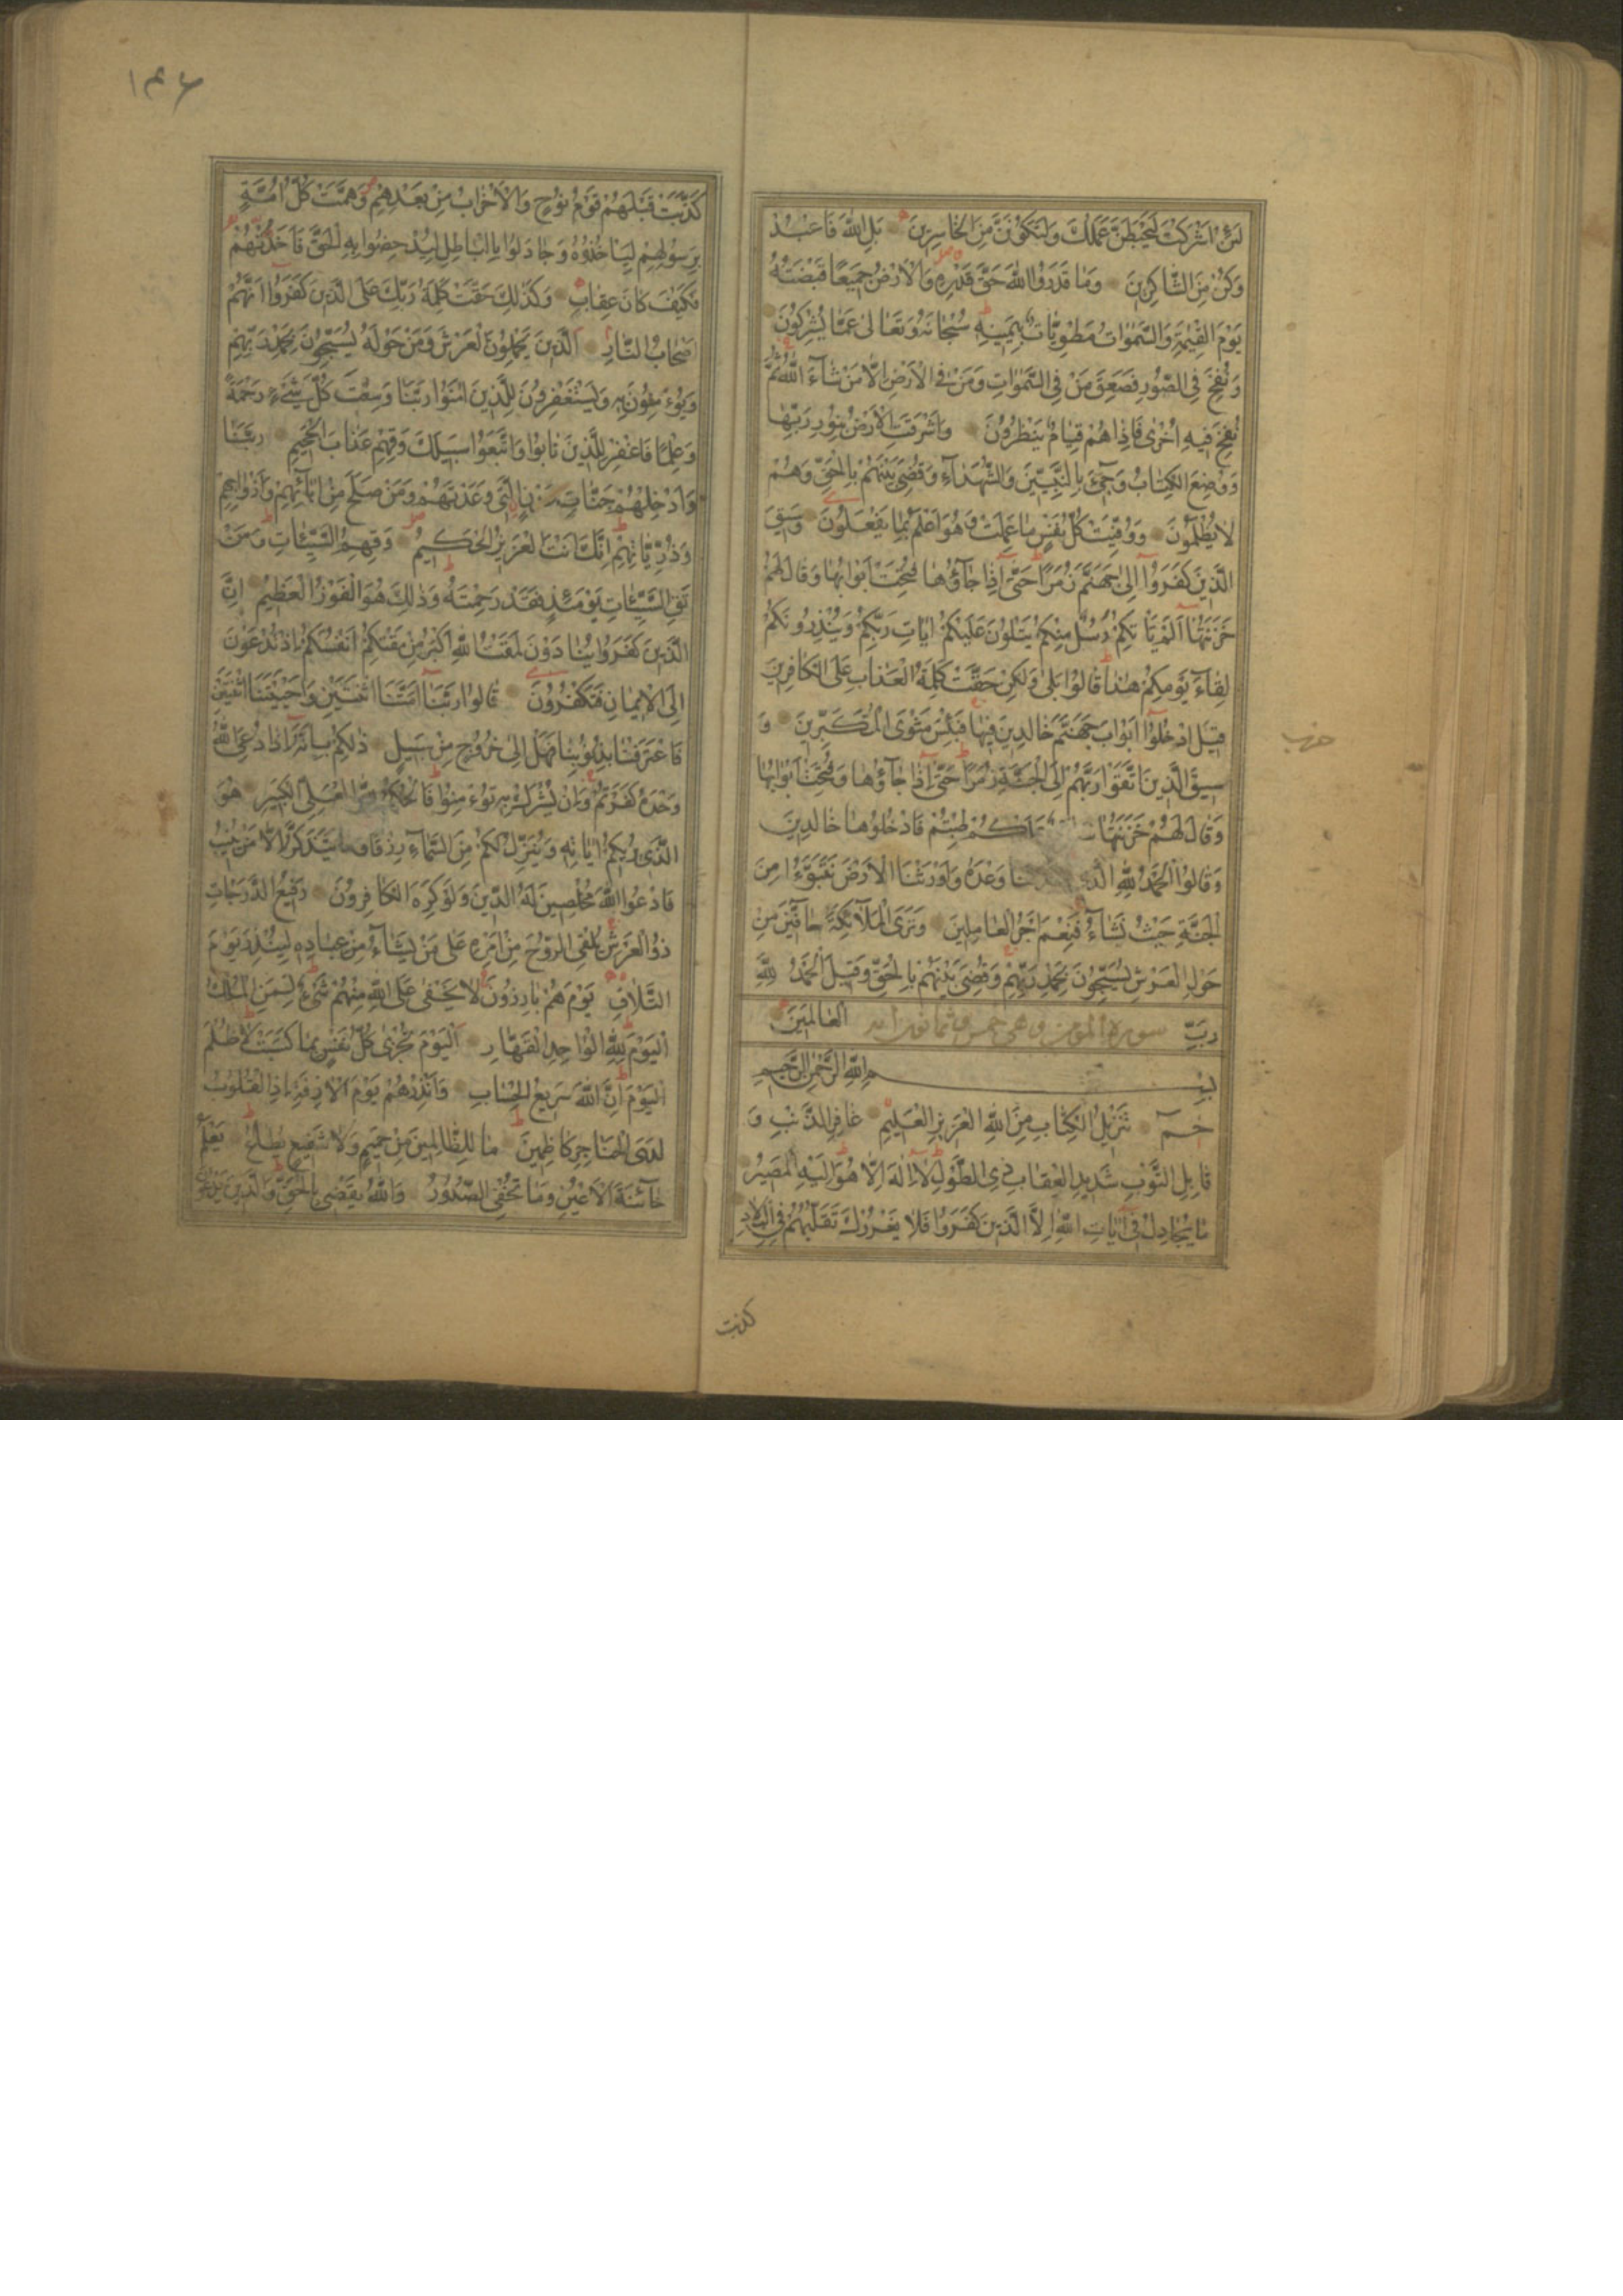 لَئِنْ اَشْرَكْتَ لَيَحْبَطَنَّ عَمَلُكَ وَلَتَكُوْنَنَّ مِنَ الْخَاسِرِيْنَ بَلِ اللّٰهَ فَاعْبُدْ
وَكُنْ مِنَ الشَّاكِرِيْنَ وَمَا قَدَرُوا اللّٰهَ حَقَّ قَدْرِهِ وَالْاَرْضُ جَمِيْعًا قَبْضَتُهُ
يَوْمَ الْقِيٰمَةِ وَالسَّمٰوَاتُ مَطْوِيَّاتٌ بِيَمِيْنِهِ سُبْحَانَهُ وَتَعَالٰى عَمَّا يُشْرِكُوْنَ
وَنُفِخَ فِى الصُّوْرِ فَصَعِقَ مَنْ فِى السَّمٰوَاتِ وَمَنْ فِى الْاَرْضِ اِلَّا مَنْ شَآءَ اللّٰهُ ثُمَّ
نُفِخَ فِيْهِ اُخْرٰى فَاِذَا هُمْ قِيَامٌ يَنْظُرُوْنَ وَاَشْرَقَتِ الْاَرْضُ بِنُوْرِ رَبِّهَا
وَوُضِعَ الْكِتَابُ وَجِيْءَ بِالنَّبِيّٖنَ وَالشُّهَدَآءِ وَقُضِىَ بَيْنَهُمْ بِالْحَقِّ وَهُمْ
لَا يُظْلَمُوْنَ وَوُفِّيَتْ كُلُّ نَفْسٍ مَا عَمِلَتْ وَهُوَ اَعْلَمُ بِمَا يَفْعَلُوْنَ وَسِيْقَ
الَّذِيْنَ كَفَرُوْا اِلٰى جَهَنَّمَ زُمَرًا حَتّٰى اِذَا جَآؤُهَا فُتِحَتْ اَبْوَابُهَا وَقَالَ لَهُمْ
خَزَنَتُهَا اَلَمْ يَاْتِكُمْ رُسُلٌ مِنْكُمْ يَتْلُوْنَ عَلَيْكُمْ اٰيَاتِ رَبِّكُمْ وَيُنْذِرُوْنَكُمْ
لِقَآءَ يَوْمِكُمْ هٰذَا قَالُوْا بَلٰى وَلٰكِنْ حَقَّتْ كَلِمَةُ الْعَذَابِ عَلَى الْكَافِرِيْنَ
قِيْلَ ادْخُلُوْا اَبْوَابَ جَهَنَّمَ خَالِدِيْنَ فِيْهَا فَبِئْسَ مَثْوَى الْمُتَكَبِّرِيْنَ وَ
سِيْقَ الَّذِيْنَ اتَّقَوْا رَبَّهُمْ اِلَى الْجَنَّةِ زُمَرًا حَتّٰى اِذَا جَآؤُهَا وَفُتِحَتْ اَبْوَابُهَا
وَقَالَ لَهُمْ خَزَنَتُهَا طِبْتُمْ فَادْخُلُوْهَا خَالِدِيْنَ
وَقَالُوا الْحَمْدُ لِلّٰهِ وَعْدَهُ وَاَوْرَثَنَا الْاَرْضَ نَتَبَوَّءُ مِنَ
الْجَنَّةِ حَيْثُ نَشَآءُ فَنِعْمَ اَجْرُ الْعَامِلِيْنَ وَتَرَى الْمَلٰٓئِكَةَ حَآفِّيْنَ مِنْ
حَوْلِ الْعَرْشِ يُسَبِّحُوْنَ بِحَمْدِ رَبِّهِمْ وَقُضِىَ بَيْنَهُمْ بِالْحَقِّ وَقِيْلَ الْحَمْدُ لِلّٰهِ
رَبِّ الْعَالَمِيْنَ
سورة المؤمن وهى خمس وثمانون اية
بِسْمِ اللّٰهِ الرَّحْمٰنِ الرَّحِيْمِ
حٰمٓ تَنْزِيْلُ الْكِتَابِ مِنَ اللّٰهِ الْعَزِيْزِ الْعَلِيْمِ غَافِرِ الذَّنْبِ وَ
قَابِلِ التَّوْبِ شَدِيْدِ الْعِقَابِ ذِى الطَّوْلِ لَا اِلٰهَ اِلَّا هُوَ اِلَيْهِ الْمَصِيْرُ
مَا يُجَادِلُ فِىْ اٰيَاتِ اللّٰهِ اِلَّا الَّذِيْنَ كَفَرُوْا فَلَا يَغْرُرْكَ تَقَلُّبُهُمْ فِى الْبِلَادِ
كذبت
حزب
١٤٦
كَذَّبَتْ قَبْلَهُمْ قَوْمُ نُوْحٍ وَالْاَحْزَابُ مِنْ بَعْدِهِمْ وَهَمَّتْ كُلُّ اُمَّةٍ
بِرَسُوْلِهِمْ لِيَاْخُذُوْهُ وَجَادَلُوْا بِالْبَاطِلِ لِيُدْحِضُوْا بِهِ الْحَقَّ فَاَخَذْتُهُمْ
فَكَيْفَ كَانَ عِقَابِ وَكَذٰلِكَ حَقَّتْ كَلِمَةُ رَبِّكَ عَلَى الَّذِيْنَ كَفَرُوْا اَنَّهُمْ
اَصْحَابُ النَّارِ اَلَّذِيْنَ يَحْمِلُوْنَ الْعَرْشَ وَمَنْ حَوْلَهُ يُسَبِّحُوْنَ بِحَمْدِ رَبِّهِمْ
وَيُؤْمِنُوْنَ بِهِ وَيَسْتَغْفِرُوْنَ لِلَّذِيْنَ اٰمَنُوْا رَبَّنَا وَسِعْتَ كُلَّ شَىْءٍ رَحْمَةً
وَعِلْمًا فَاغْفِرْ لِلَّذِيْنَ تَابُوْا وَاتَّبَعُوْا سَبِيْلَكَ وَقِهِمْ عَذَابَ الْجَحِيْمِ رَبَّنَا
وَاَدْخِلْهُمْ جَنَّاتِ عَدْنٍ الَّتِىْ وَعَدْتَهُمْ وَمَنْ صَلَحَ مِنْ اٰبَآئِهِمْ وَاَزْوَاجِهِمْ
وَذُرِّيَّاتِهِمْ اِنَّكَ اَنْتَ الْعَزِيْزُ الْحَكِيْمُ وَقِهِمُ السَّيِّئَاتِ وَمَنْ
تَقِ السَّيِّئَاتِ يَوْمَئِذٍ فَقَدْ رَحِمْتَهُ وَذٰلِكَ هُوَ الْفَوْزُ الْعَظِيْمُ اِنَّ
الَّذِيْنَ كَفَرُوْا يُنَادَوْنَ لَمَقْتُ اللّٰهِ اَكْبَرُ مِنْ مَقْتِكُمْ اَنْفُسَكُمْ اِذْ تُدْعَوْنَ
اِلَى الْاِيْمَانِ فَتَكْفُرُوْنَ قَالُوْا رَبَّنَا اَمَتَّنَا اثْنَتَيْنِ وَاَحْيَيْتَنَا اثْنَتَيْنِ
فَاعْتَرَفْنَا بِذُنُوْبِنَا فَهَلْ اِلٰى خُرُوْجٍ مِنْ سَبِيْلٍ ذٰلِكُمْ بِاَنَّهُ اِذَا دُعِىَ اللّٰهُ
وَحْدَهُ كَفَرْتُمْ وَاِنْ يُشْرَكْ بِهِ تُؤْمِنُوْا فَالْحُكْمُ لِلّٰهِ الْعَلِىِّ الْكَبِيْرِ هُوَ
الَّذِىْ يُرِيْكُمْ اٰيَاتِهِ وَيُنَزِّلُ لَكُمْ مِنَ السَّمَآءِ رِزْقًا وَمَا يَتَذَكَّرُ اِلَّا مَنْ يُنِيْبُ
فَادْعُوا اللّٰهَ مُخْلِصِيْنَ لَهُ الدِّيْنَ وَلَوْ كَرِهَ الْكَافِرُوْنَ رَفِيْعُ الدَّرَجَاتِ
ذُو الْعَرْشِ يُلْقِى الرُّوْحَ مِنْ اَمْرِهِ عَلٰى مَنْ يَشَآءُ مِنْ عِبَادِهِ لِيُنْذِرَ يَوْمَ
التَّلَاقِ يَوْمَ هُمْ بَارِزُوْنَ لَا يَخْفٰى عَلَى اللّٰهِ مِنْهُمْ شَىْءٌ لِمَنِ الْمُلْكُ
الْيَوْمَ لِلّٰهِ الْوَاحِدِ الْقَهَّارِ اَلْيَوْمَ تُجْزٰى كُلُّ نَفْسٍ بِمَا كَسَبَتْ لَا ظُلْمَ
الْيَوْمَ اِنَّ اللّٰهَ سَرِيْعُ الْحِسَابِ وَاَنْذِرْهُمْ يَوْمَ الْاٰزِفَةِ اِذِ الْقُلُوْبُ
لَدَى الْحَنَاجِرِ كَاظِمِيْنَ مَا لِلظَّالِمِيْنَ مِنْ حَمِيْمٍ وَلَا شَفِيْعٍ يُطَاعُ يَعْلَمُ
خَآئِنَةَ الْاَعْيُنِ وَمَا تُخْفِى الصُّدُوْرُ وَاللّٰهُ يَقْضِىْ بِالْحَقِّ وَالَّذِيْنَ يَدْعُوْنَ